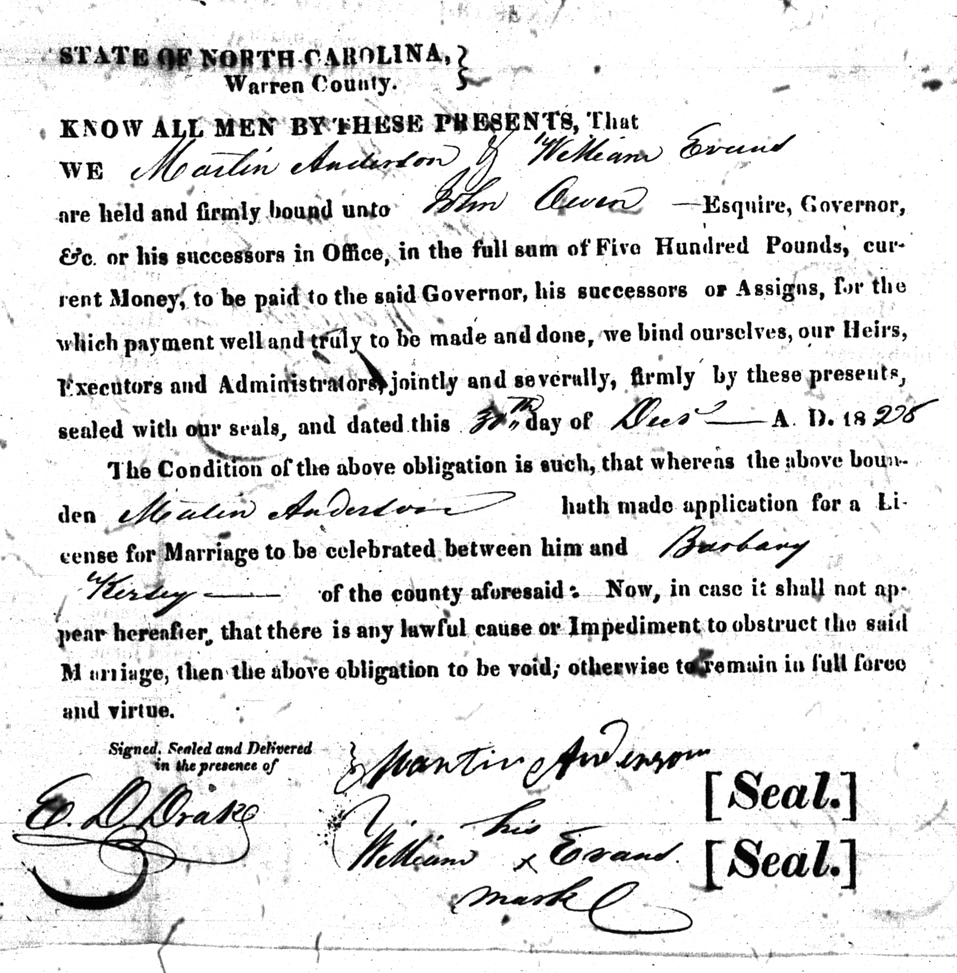 STATE OF NORTH CAROLINA, }
Warren County.
KNOW ALL MEN BY THESE PRESENTS, That
WE Martin Anderson & William Evans
are held and firmly bound unto John Owen — Esquire, Governor,
&c. or his successors in Office, in the full sum of Five Hundred Pounds, cur-
rent Money, to be paid to the said Governor, his successors or Assigns, for the
which payment well and truly to be made and done, we bind ourselves, our Heirs,
Executors and Administrators, jointly and severally, firmly by these presents,
sealed with our seals, and dated this th day of Decr — A. D. 18
The Condition of the above obligation is such, that whereas the above boun-
den Martin Anderson hath made application for a Li-
cense for Marriage to be celebrated between him and Barbary
Kersey — of the county aforesaid: Now, in case it shall not ap-
pear hereafter, that there is any lawful cause or Impediment to obstruct the said
Marriage, then the above obligation to be void; otherwise to remain in full force
and virtue.
Signed, Sealed and Delivered
in the presence of
E. D Drake
Martin Anderson [Seal.]
his
William x Evans. [Seal.]
mark